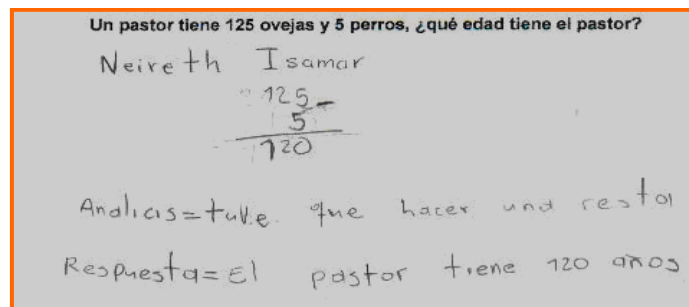 Un pastor tiene 125 ovejas y 5 perros, ¿qué edad tiene el pastor?
Neireth Isamar
125-
5
120
Analicis=tuve que hacer una resta
Respuesta= El pastor tiene 120 años